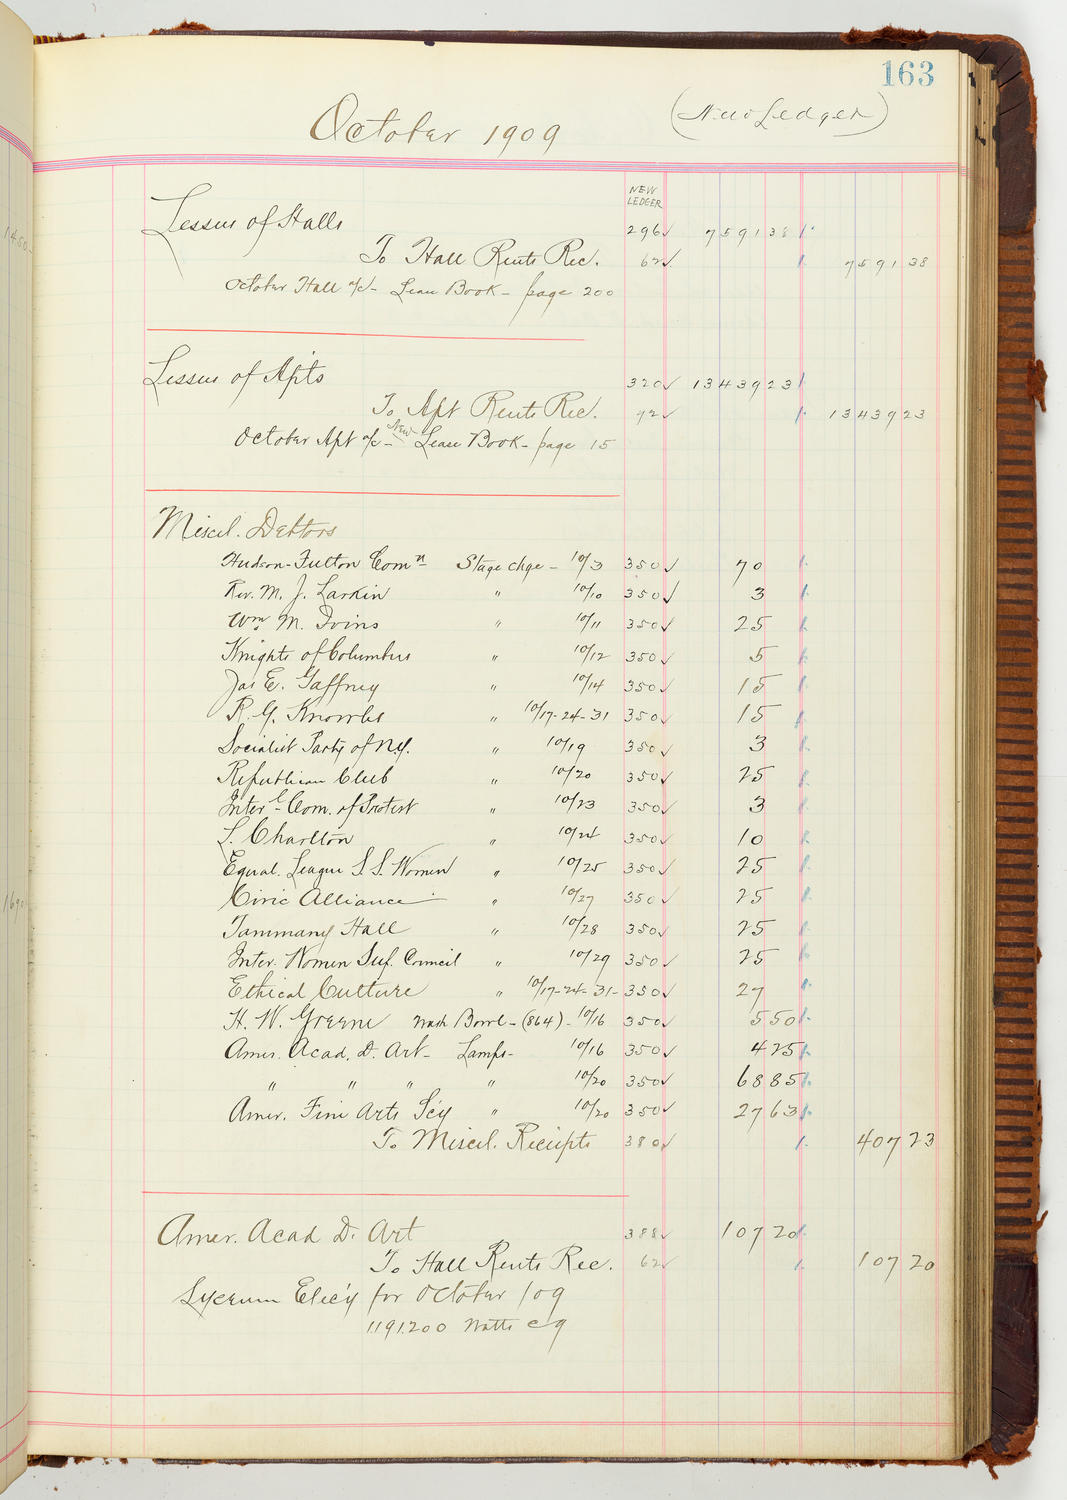 163
October 1909 (New Ledger)
NEW LEDGER
Lessees of Halls 296 7591 38
To Hall Rents Rec. 62 7591 38
October Hall a/c - Lease Book - page 200
Lessees of Apts 320 13439 23
To Apt Rents Rec. 92 13439 23
October Apt a/c - New Lease Book - page 15
Miscel. Debtors
Hudson-Fulton Comn Stage chge - 10/3 350 70
Rev. M. J. Larkin " 10/10 350 3
Wm. M. Ivins " 10/11 350 25
Knights of Columbus " 10/12 350 5
Jas E. Gaffney " 10/14 350 15
R. G. Knowles " 10/17-24-31 350 15
Socialist Party of N.Y. " 10/19 350 3
Republican Club " 10/20 350 25
Inter. Com. of Protest " 10/23 350 3
L. Charlton " 10/24 350 10
Equal. League S. S. Women " 10/25 350 25
Civic Alliance " 10/27 350 25
Tammany Hall " 10/28 350 25
Inter. Women Suf. Council " 10/29 350 25
Ethical Culture " 10/17-24-31- 350 27
H. W. Greene Wash Bowl - (864) - 10/16 350 5 50
Amer. Acad. D. Art - Lamps - 10/16 350 4 25
" " " " 10/20 350 68 85
Amer. Fine Arts Sc'y " 10/20 350 27 63
To Miscel. Receipts 380 407 23
Amer. Acad D. Art 388 107 20
To Hall Rents Rec. 62 107 20
Lyceum Elec'y for October /09
1191200 Watts @ 9